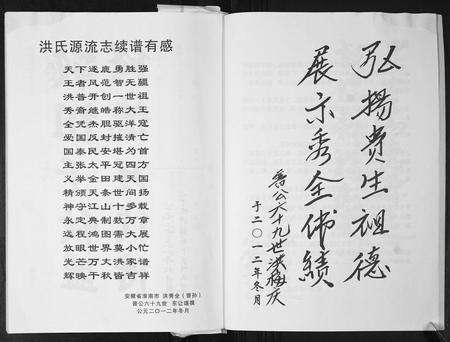 洪氏源流志续谱有感
天下逐鹿勇胜强
王者风范智无疆
洪普开创一世祖
秀裔继皓称大王
全凭杰胆驱洋寇
爱国反封摧清亡
国泰民安堪为首
主张太平冠四方
义举金田建天国
精颁天条世间扬
神守泰山十多载
永定典制数万章
远程鸿图需大展
放眼世界莫小忙
光芒万丈洪家谱
辉映千秋皆吉祥
安徽省淮南市 洪秀全（晋孙）
晋公六十九世
公元二〇一二年冬月
弘扬贵生祖德
展示秀全伟绩
晋公六十九世洪
于二〇一二年冬月